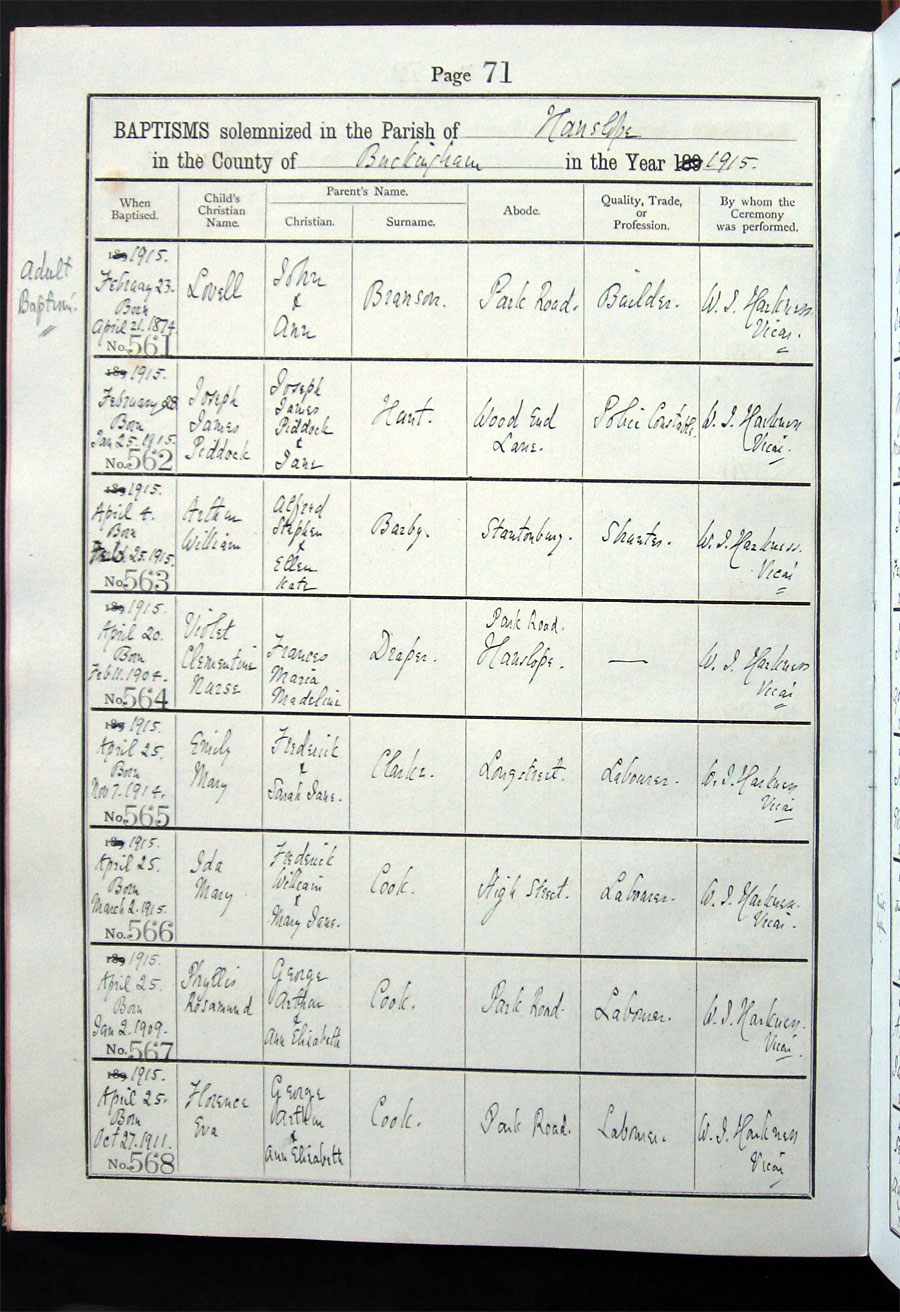 Page 71
BAPTISMS solemnized in the Parish of Hanslope
in the County of Buckingham in the Year 189 1915.
When Baptised.
Child's Christian Name.
Parent's Name.
Christian.
Surname.
Abode.
Quality, Trade, or Profession.
By whom the Ceremony was performed.
Adult
Baptism.
189 1915.
February 23.
Born
April 21. 1874
No. 561
Lovell
John
&
Ann
Branson.
Park Road.
Builder.
W. J. Harkness
Vicar.
189 1915.
February 28.
Born
Jan 25. 1915.
No. 562
Joseph
James
Piddock
Joseph
James
Piddock
&
Jane
Hunt.
Wood End
Lane.
Police Constable.
W. J. Harkness
Vicar.
189 1915.
April 4.
Born
Feb. 25. 1915.
No. 563
Arthur
William
Alfred
Stephen
&
Ellen
Kate
Barby.
Stantonbury.
Shunter.
W. J. Harkness.
Vicar
189 1915.
April 20.
Born
Feb 11. 1904.
No. 564
Violet
Clementine
Nurse
Frances
Maria
Madeline
Draper.
Park Road.
Hanslope.
—
W. J. Harkness
Vicar
189 1915.
April 25.
Born
Nov 7. 1914.
No. 565
Emily
Mary
Frederick
&
Sarah Jane.
Clarke.
Longstreet.
Labourer.
W. J. Harkness
Vicar
189 1915.
April 25.
Born
March 2. 1915.
No. 566
Ida
Mary
Frederick
William
&
Mary Jane.
Cook.
High Street.
Labourer.
W. J. Harkness.
Vicar.
189 1915.
April 25.
Born
Jan 2. 1909.
No. 567
Phyllis
Rosamund
George
Arthur
&
Ann Elizabeth
Cook.
Park Road.
Labourer.
W. J. Harkness.
Vicar.
189 1915.
April 25.
Born
Oct 27. 1911.
No. 568
Florence
Eva
George
Arthur
&
Ann Elizabeth
Cook.
Park Road.
Labourer.
W. J. Harkness
Vicar